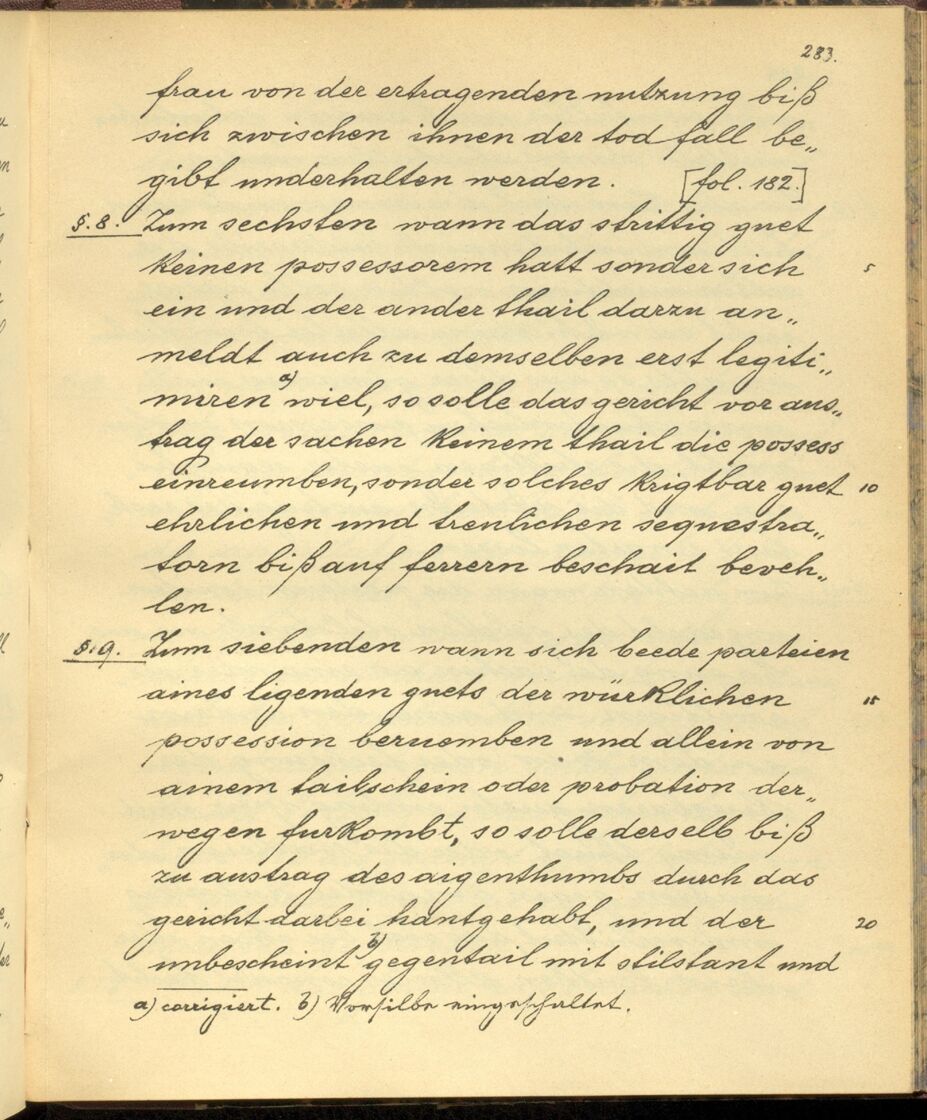 283.
frau von der ertragenden nutzung biß
sich zwischen ihnen der tod fall be„
gibt underhalten werden. [fol. 182.]
§. 8. Zum sechsten wann das strittig guet
keinen possessorem hatt sonder sich 5
ein und der ander thail darzu an„
meldt auch zu demselben erst legiti„
miren a) wiel, so solle das gericht vor aus„
trag der sachen keinem thail die possess
einreumben, sonder solches krigtbar guet 10
ehrlichen und treulichen sequestra„
torn biß auf ferrern beschait beveh„
len.
§. 9. Zum siebenden wann sich beede parteien
aines ligenden guets der würklichen 15
possession beruemben und allein von
ainem tailschein oder probation der„
wegen furkombt, so solle derselb biß
zu austrag des aigenthumbs durch das
gericht darbei hantgehabt, und der 20
unbescheint b) gegentail mit stilstant und
a) corrigiert. b) Vorsilbe eingeschaltet.